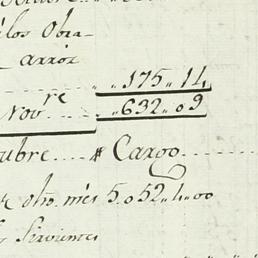 los Obra-
arróz
" " 175 " 14
Nov.re " " 632 " 09
ubre .... # Cargo
otro mes 5 0 52 " 4 " 00
y Sirvientes